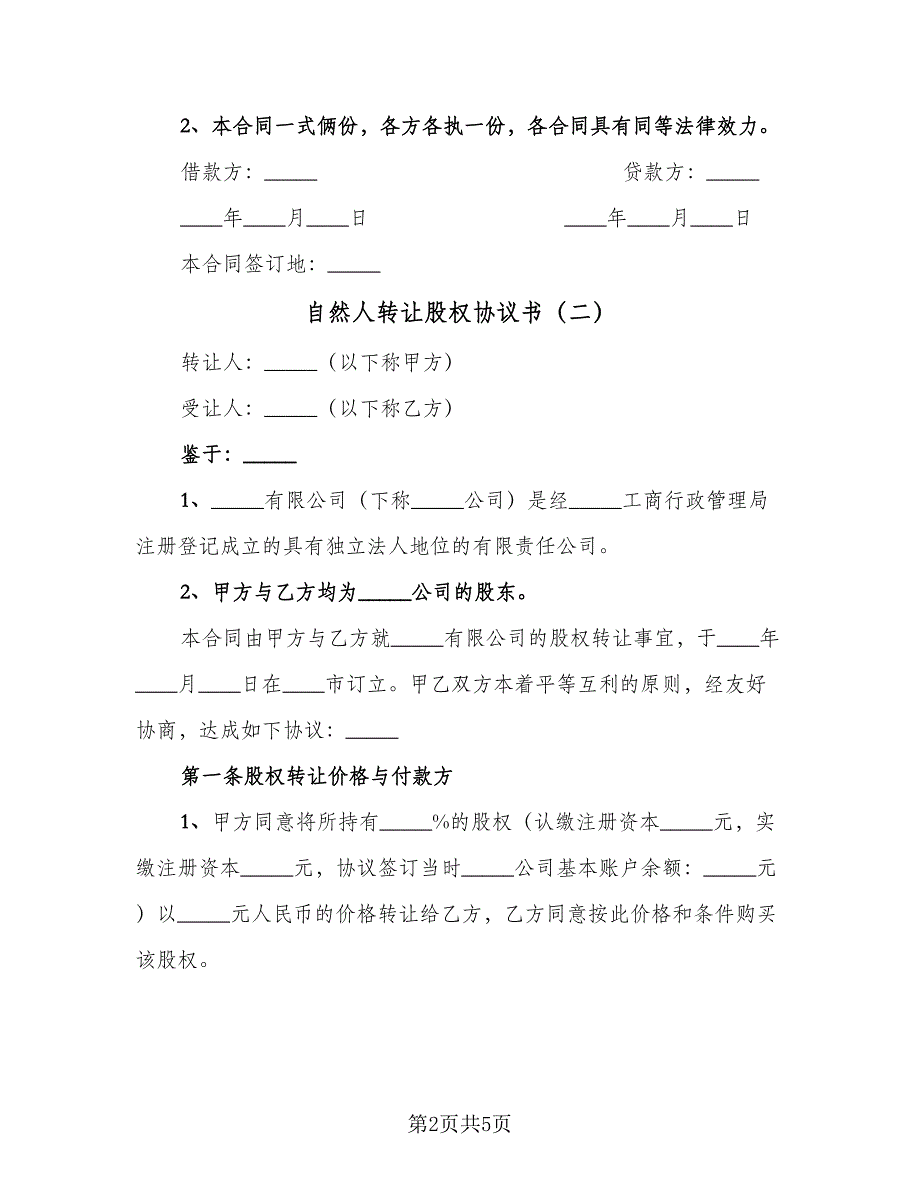 2、本合同一式俩份，各方各执一份，各合同具有同等法律效力。
借款方：_____ 贷款方：_____
____年____月____日 ____年____月____日
本合同签订地：_____
自然人转让股权协议书（二）
转让人：_____（以下称甲方）
受让人：_____（以下称乙方）
鉴于：_____
1、_____有限公司（下称_____公司）是经_____工商行政管理局
注册登记成立的具有独立法人地位的有限责任公司。
2、甲方与乙方均为_____公司的股东。
本合同由甲方与乙方就_____有限公司的股权转让事宜，于____年
____月____日在____市订立。甲乙双方本着平等互利的原则，经友好
协商，达成如下协议：_____
第一条股权转让价格与付款方
1、甲方同意将所持有_____%的股权（认缴注册资本_____元，实
缴注册资本_____元，协议签订当时_____公司基本账户余额：_____元
）以_____元人民币的价格转让给乙方，乙方同意按此价格和条件购买
该股权。
第2页共5页